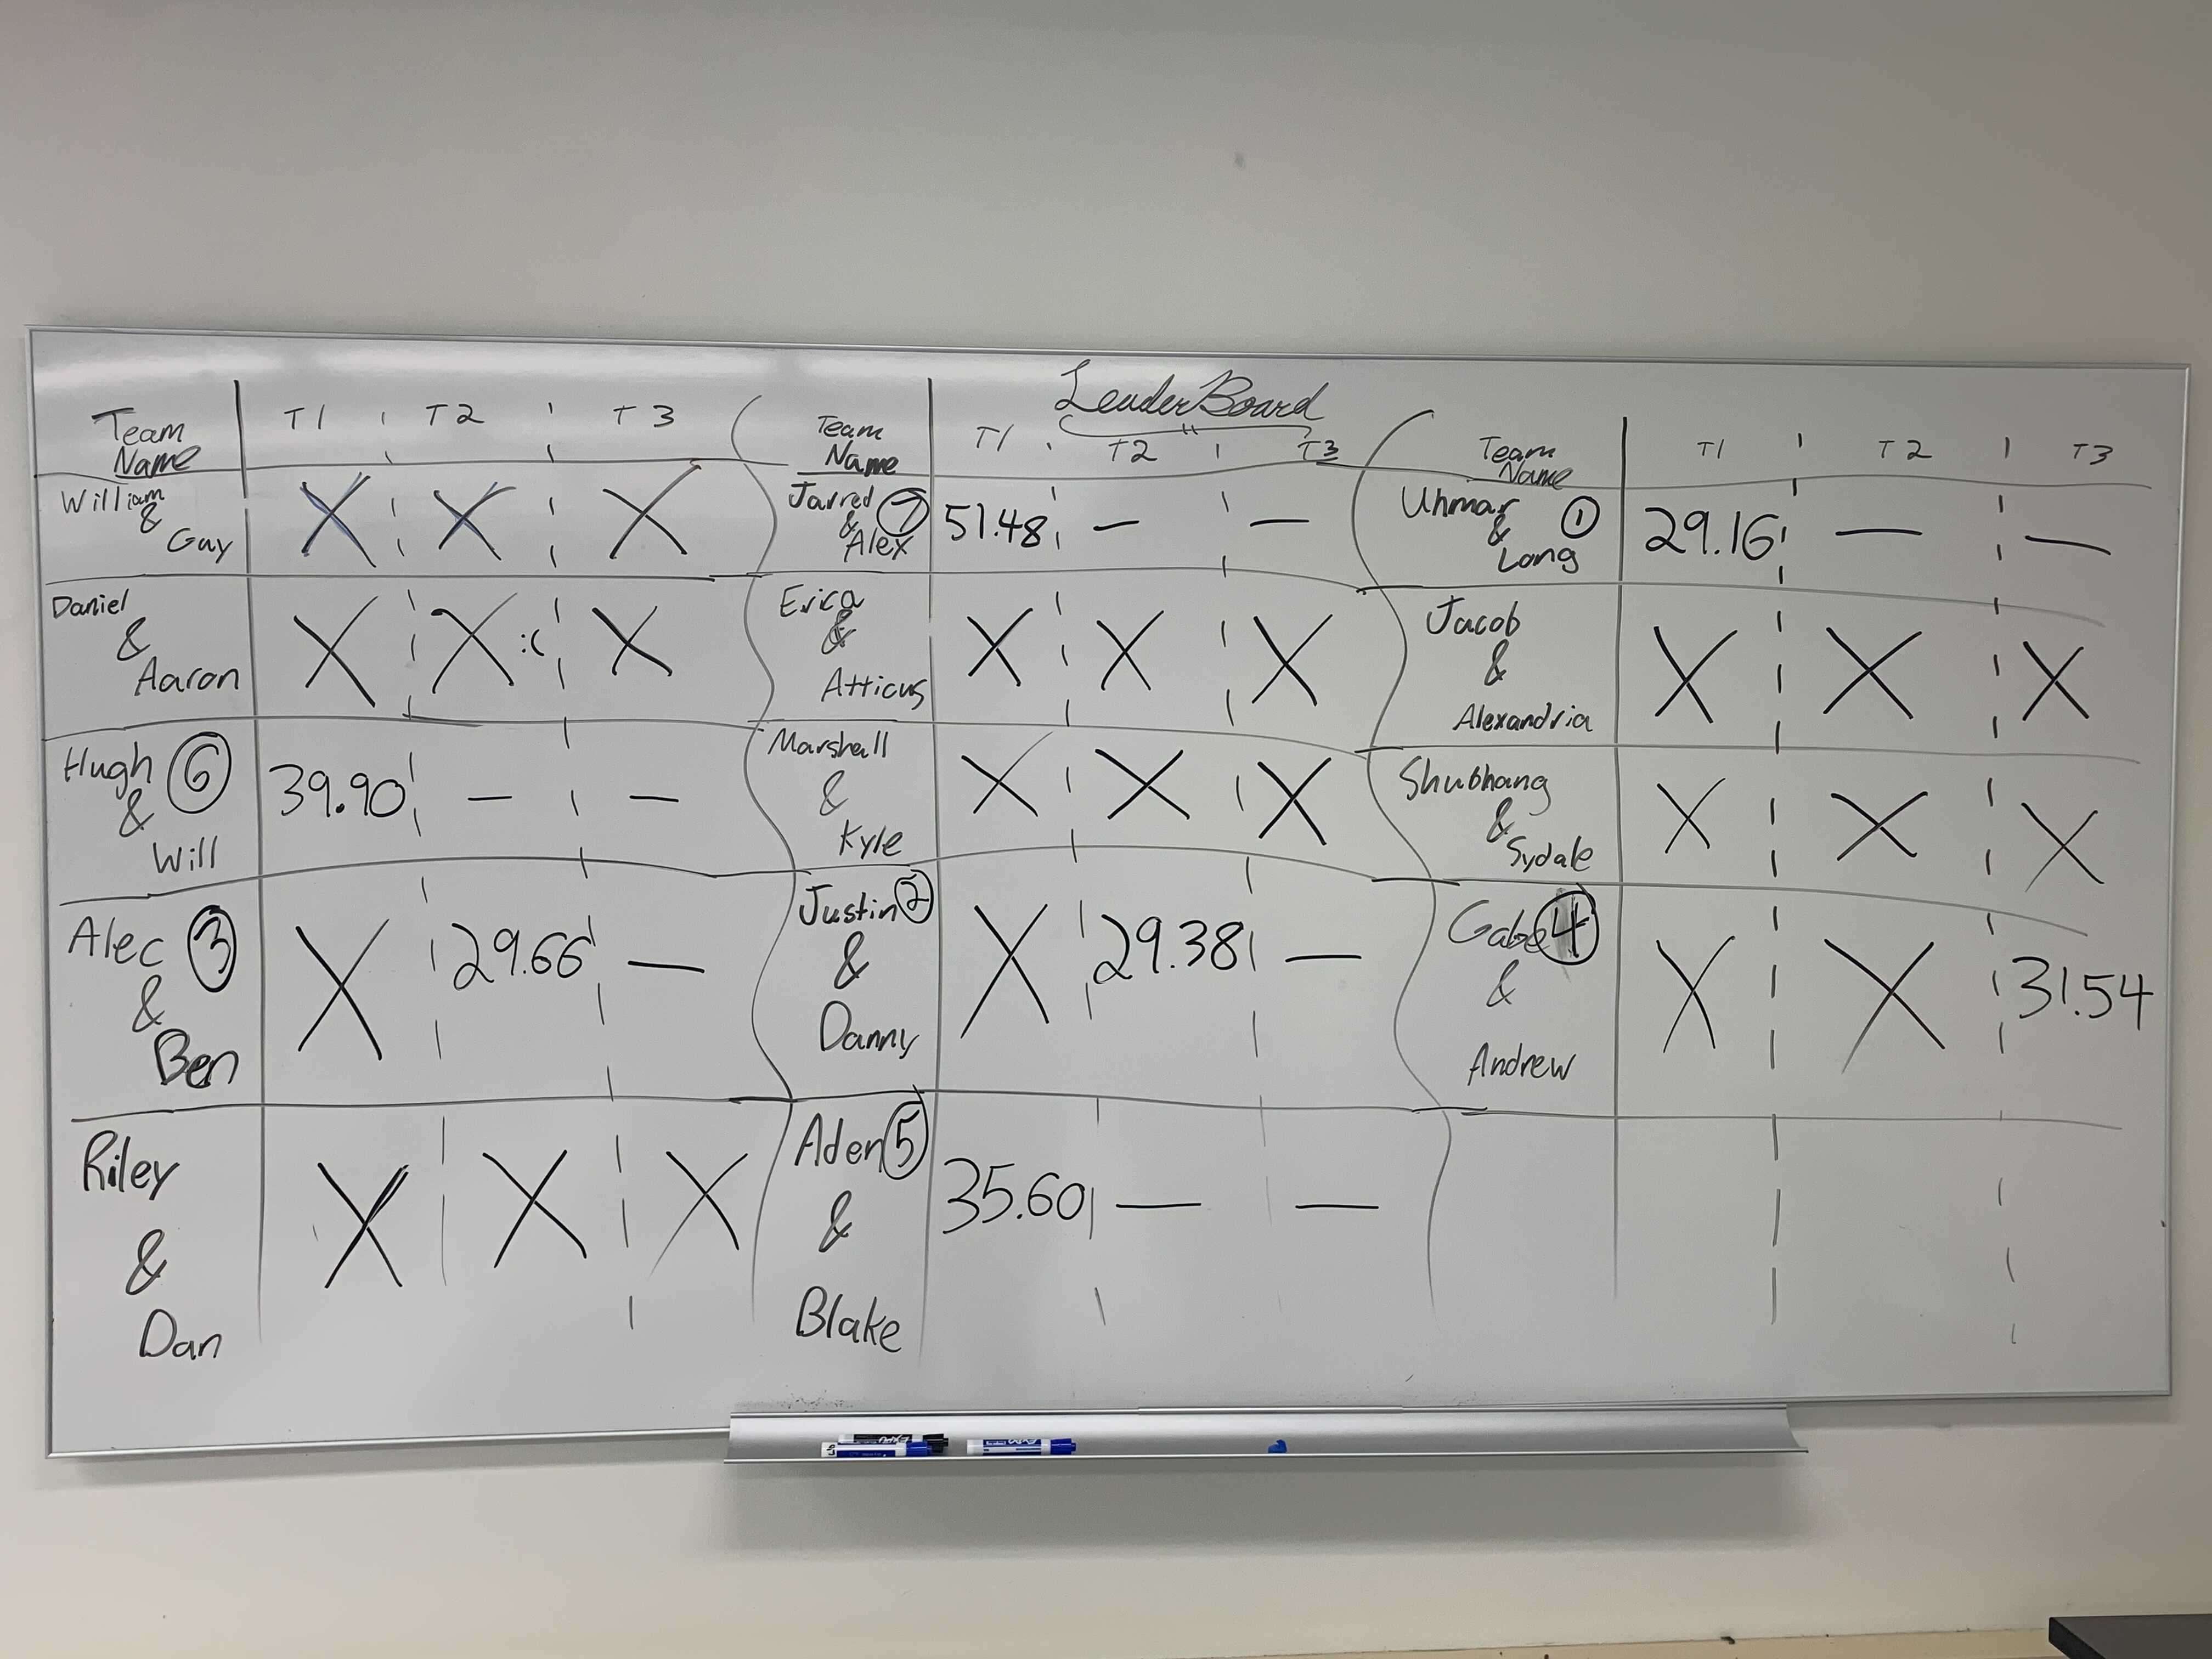 LeaderBoard
Team Name T1 T2 T3
William & Guy X X X
Daniel & Aaron X X :( X
Hugh & Will 6 39.90 — —
Alec & Ben 3 X 29.66 —
Riley & Dan X X X
Team Name T1 T2 T3
Jarred & Alex 7 51.48 — —
Erica & Atticus X X X
Marshall & Kyle X X X
Justin & Danny 2 X 29.38 —
Aden & Blake 5 35.60 — —
Team Name T1 T2 T3
Uhmar & Long 1 29.16 — —
Jacob & Alexandria X X X
Shubhang & Sydale X X X
Gabe & Andrew 4 X X 31.54
EXPO